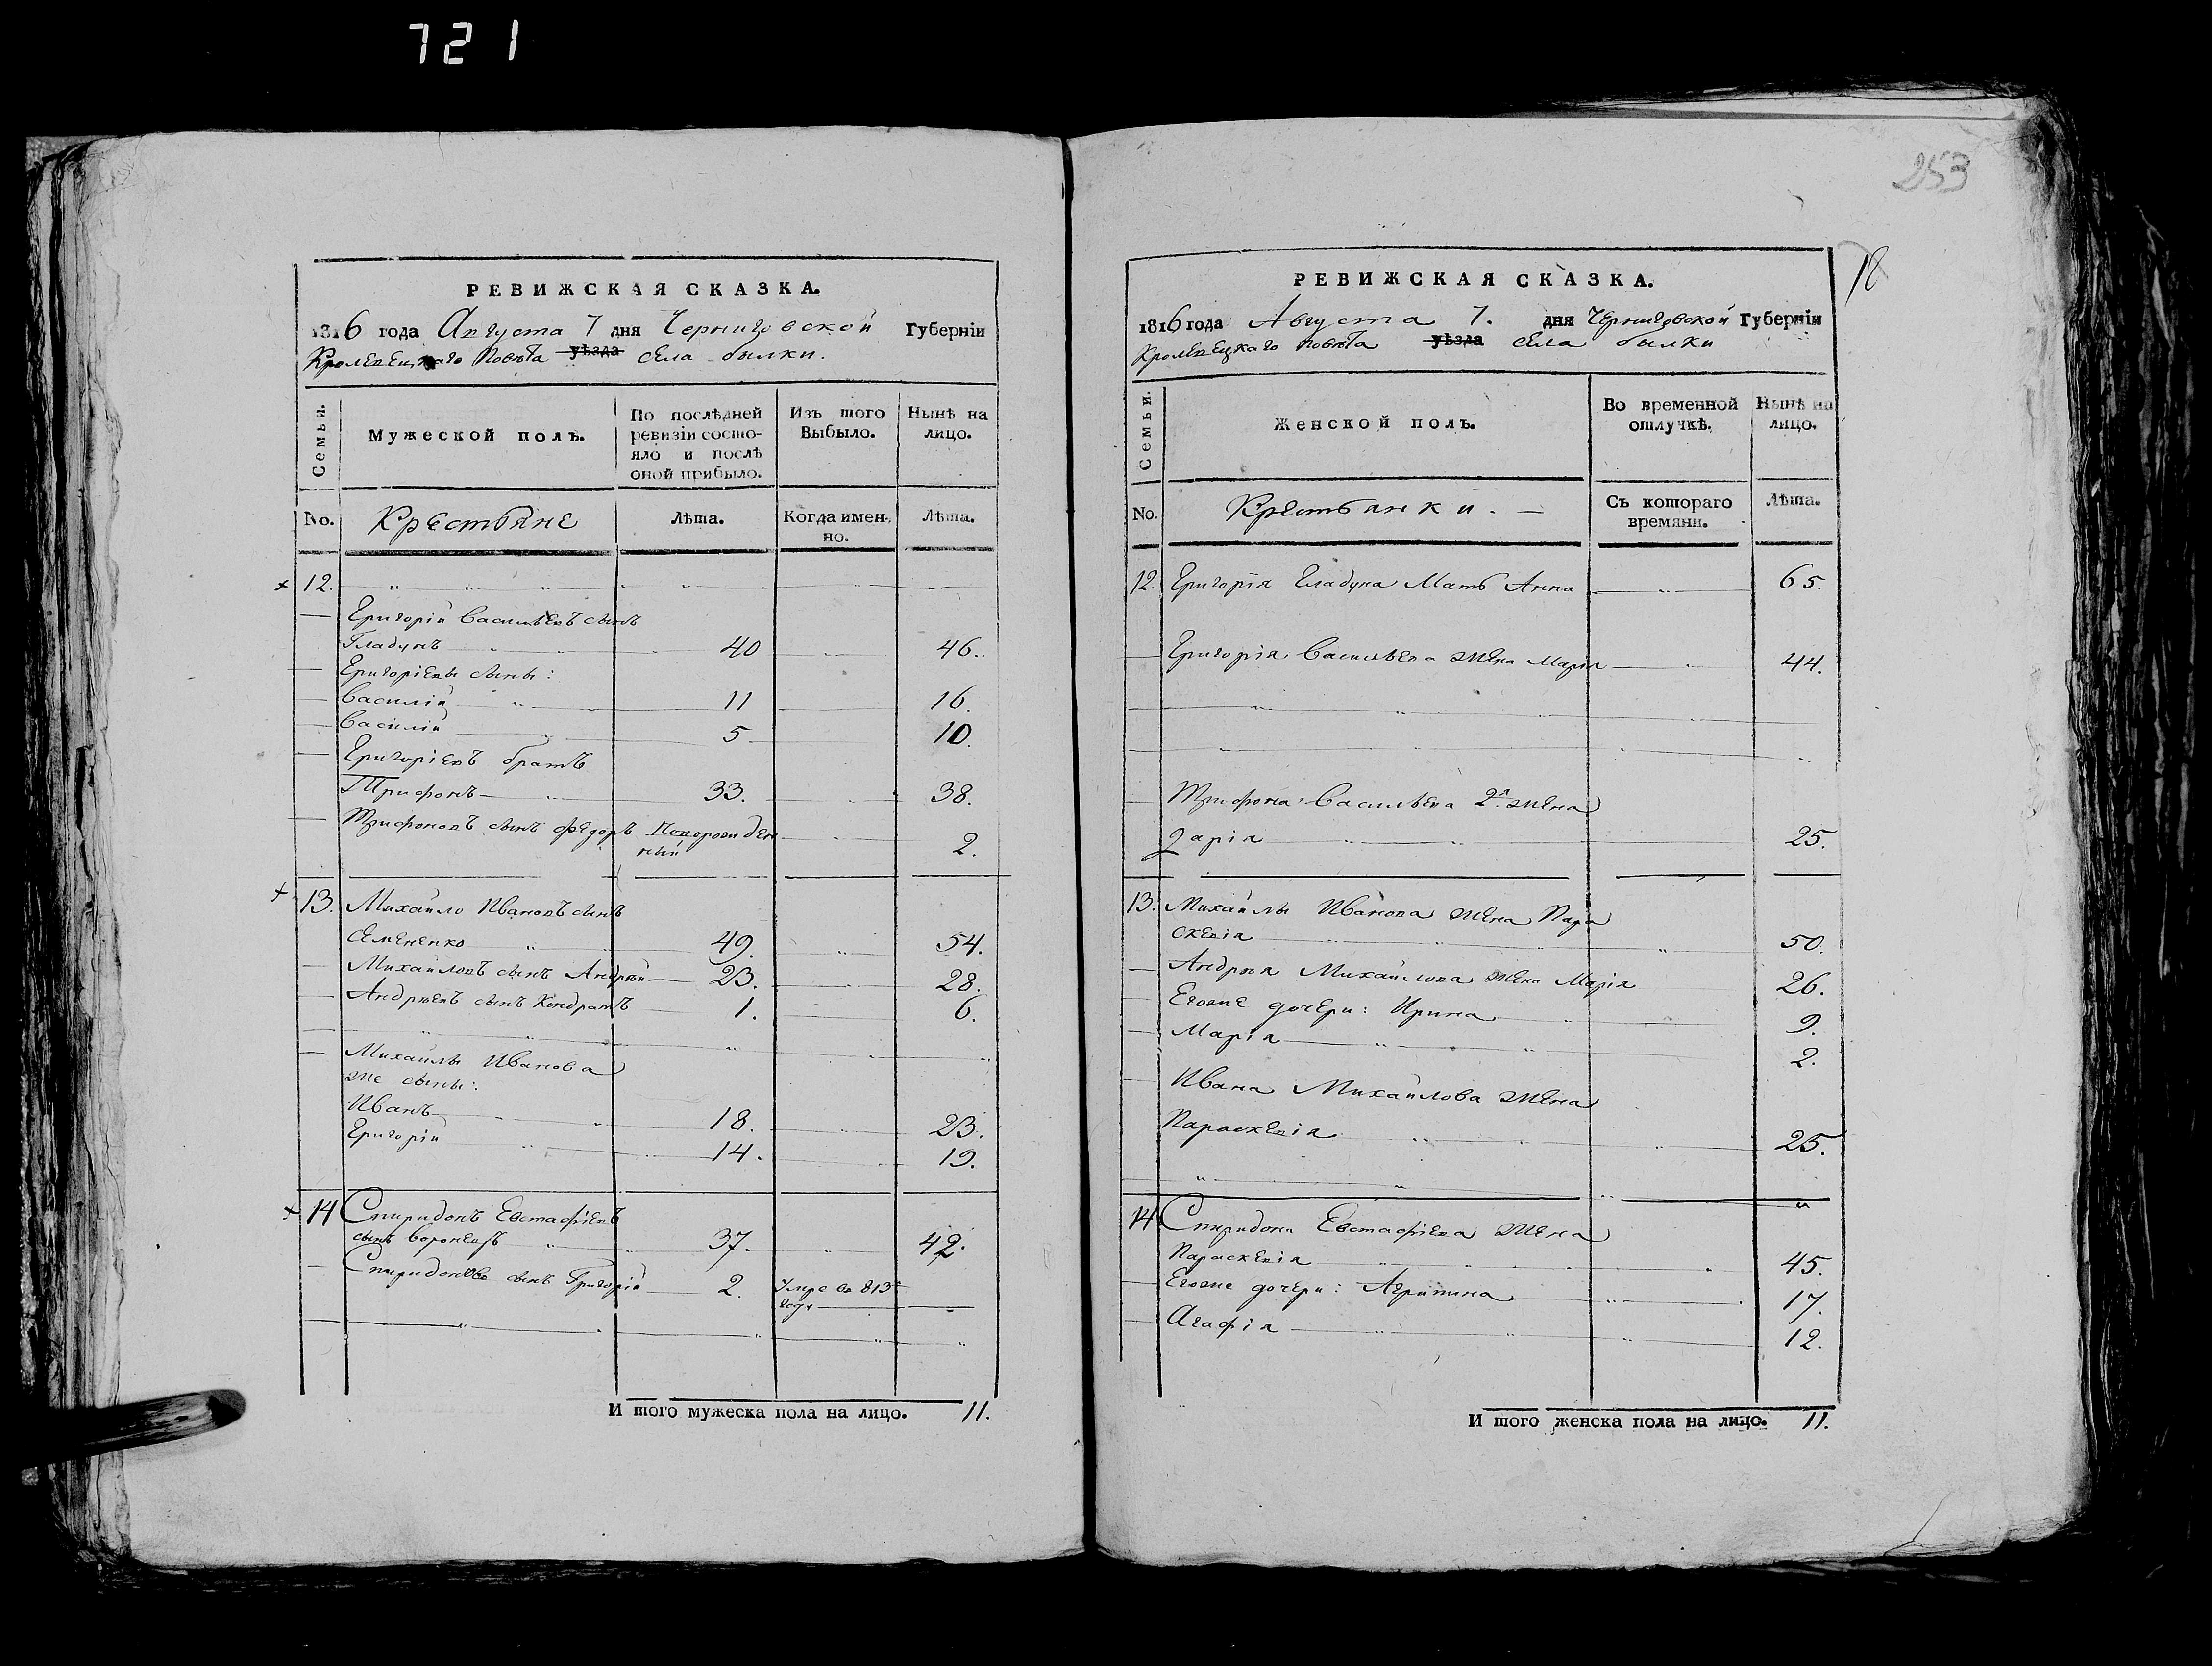 721
253
18
РЕВИЖСКАЯ СКАЗКА.
1816 года Августа 7 дня Черниговской Губерніи
Кролевецкаго повѣта уѣзда села былки.
Семьи.
Мужеской полъ.
По послѣдней ревизіи состо-
яло и послѣ оной прибыло.
Изъ того Выбыло.
Нынѣ на лицо.
No. Крестьяне Лѣта. Когда имен-
но. Лѣта.
12.
Григорій Васильевъ сынъ
Гладунъ 40 46.
Григоріевы сыны:
Василій 11 16.
Василій 5 10.
Григоріевъ братъ
Трифонъ 33. 38.
Трифоновъ сынъ Федоръ Новорожден
ный 2.
13. Михайло Ивановъ сынъ
Семененко 49. 54.
Михайловъ сынъ Андрѣй 23. 28.
Андрѣевъ сынъ Кондратъ 1. 6.
Михайлы Иванова
же сыны:
Иванъ 18. 23.
Григорій 14. 19.
14 Спиридонъ Евстафіевъ
сынъ Воронецъ 37. 42.
Спиридоновъ сынъ Григорій 2. Умре въ 813
году
И того мужеска пола на лицо. 11.
РЕВИЖСКАЯ СКАЗКА.
1816 года Августа 7. дня Черниговской Губерніи
Кролевецкаго повѣта уѣзда села былки
Семьи.
Женской полъ.
Во временной отлучкѣ.
Нынѣ на лицо.
No. Крестьянки. Съ котораго времяни. Лѣта.
12. Григорія Гладуна Мать Анна 65.
Григорія Васильева жена Марія 44.
Трифона Васильева 2я жена
Дарія 25.
13. Михайлы Иванова жена Пара
скевія 50.
Андрѣя Михайлова жена Марія 26.
Егоже дочери: Ирина 9.
Марія 2.
Ивана Михайлова жена
Параскевія 25.
14 Спиридона Евстафіева жена
Параскевія 45.
Егоже дочери: Агрипина 17.
Агафія 12.
И того женска пола на лицо. 11.